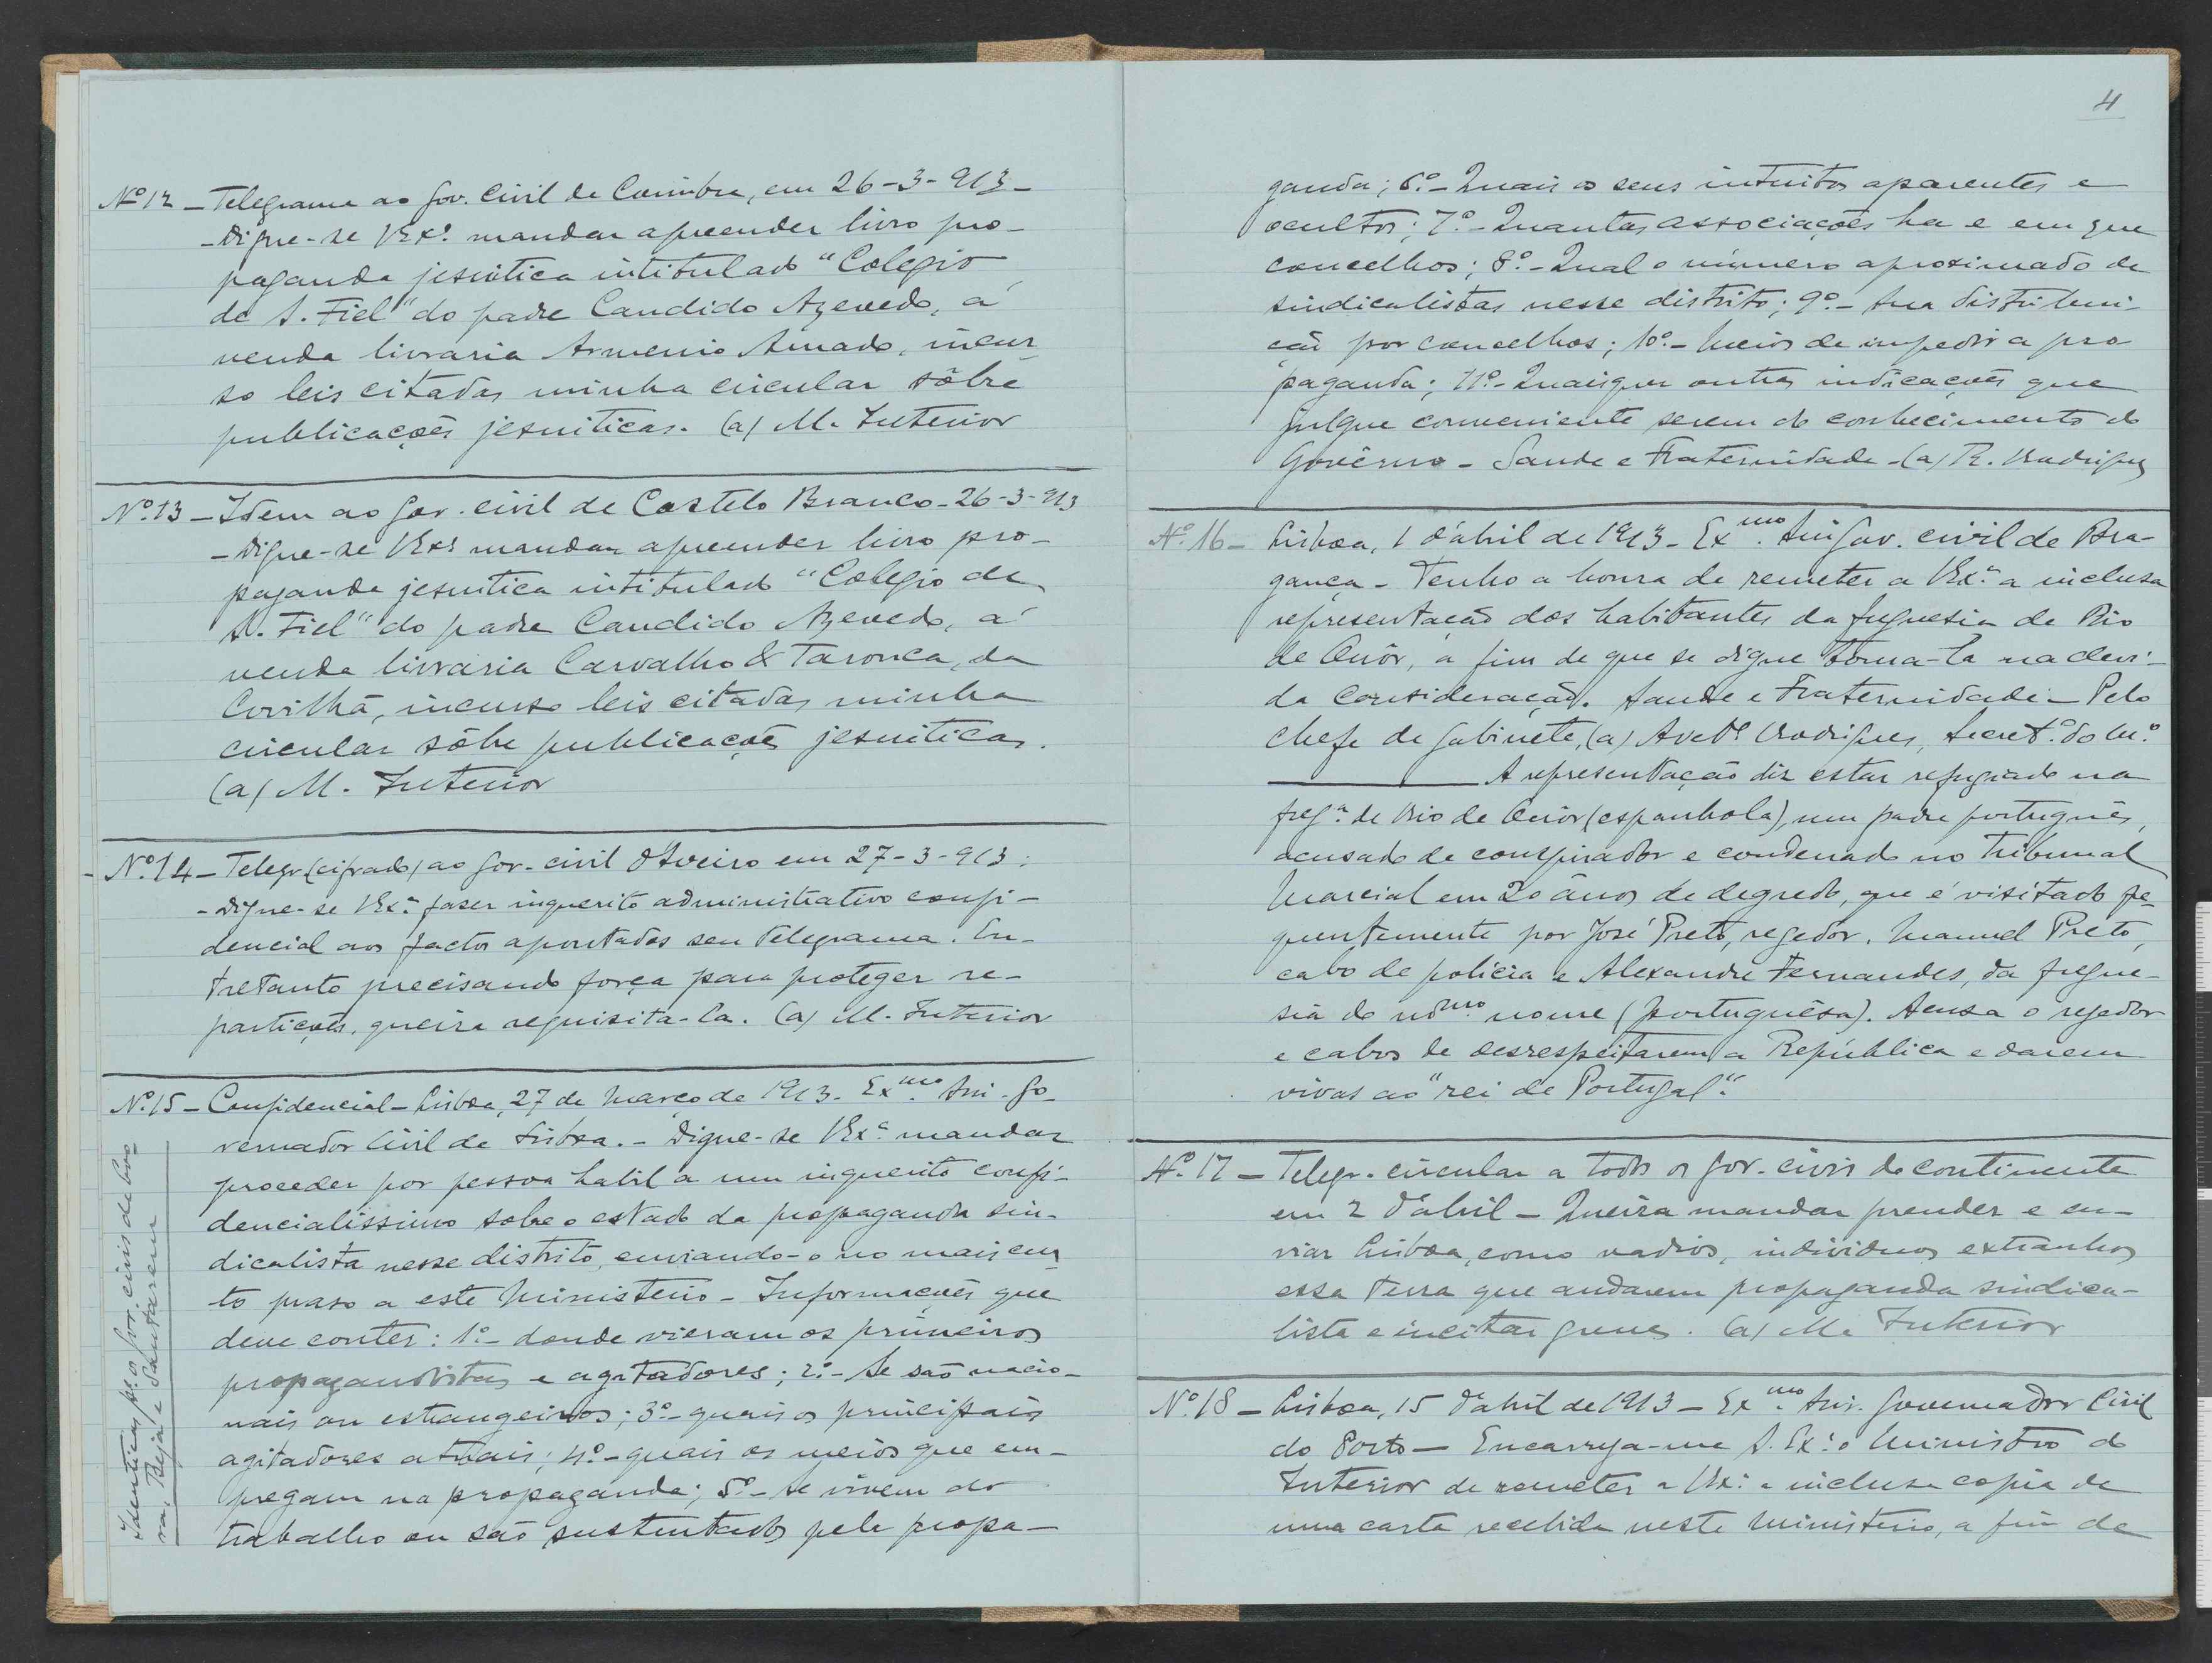 Nº 12 - Telegrama ao Gov. Civil de Coimbra, em 26-3-913 -
- Digne-se V. Exª. mandar apreender livro pro-
paganda jesuitica intitulado "Colegio
de S. Fiel" do padre Candido Azevedo, á
venda livraria Armenio Amado, incur-
so leis citadas minha circular sôbre
publicações jesuiticas. (a) M. Interior
Nº. 13 - Idem ao Gov. civil de Castelo Branco - 26-3-913
- Digne-se V. Exª mandar apreender livro pro-
paganda jesuitica intitulado "Colegio de
S. Fiel" do padre Candido Azevedo, á
venda livraria Carvalho & Taronca, da
Covilhã, incurso leis citadas minha
circular sôbre publicações jesuiticas.
(a) M. Interior
- Nº. 14 - Telegr. (cifrado) ao Gov. civil d'Aveiro em 27-3-913:
- Digne-se V. Exª. faser inquerito administrativo confi-
dencial aos factos apontados seu telegrama. En-
tretanto precisando força para proteger re-
partições, queira requisita-la. (a) M. Interior
Nº. 15 - Confidencial - Lisboa, 27 de Março de 1913. Exmo. Snr. Go-
vernador Civil de Lisboa. - Digne-se V. Exª mandar
proceder por pessoa habil a um inquerito confi-
dencialissimo sobre o estado da propaganda sin-
dicalista nesse distrito, enviando-o no mais cur-
to praso a este Ministerio - Informações que
deve conter: 1º - donde vieram os primeiros
propagandistas e agitadores; 2º - Se são nacio-
nais ou estrangeiros; 3º - quais os principais
agitadores atuais; 4º - quais os meios que em-
pregam na propaganda; 5º - Se vivem do
trabalho ou são sustentados pela propa-
Identicas pª. os Gov. civis de Evo-
ra, Beja e Santarem
4
ganda; 6º - Quais os seus intuitos aparentes e
ocultos; 7º - Quantas associações ha e em que
concelhos; 8º - Qual o número aproximado de
sindicalistas nesse distrito; 9º - Sua distribui-
ção por concelhos; 10º - Meios de impedir a pro
paganda; 11º - Quaisquer outras indicações que
julgue conveniente serem do conhecimento do
Govêrno - Saude e Fraternidade - (a) R. Rodrigues
Nº. 16 - Lisboa, 1 d'abril de 1913 - Exmo. Snr. Gov. civil de Bra-
gança - Tenho a honra de remeter a V. Exª. a inclusa
representação dos habitantes da freguesia de Rio
de Onôr, a fim de que se digne toma-la na devi-
da consideração. Saude e Fraternidade - Pelo
Chefe de Gabinete, (a) Avelº Rodrigues, Secretº. do Mº.
A representação diz estar refugiado na
fregª. de Rio de Onôr (espanhola), um padre português,
acusado de conspirador e condenado no Tribunal
Marcial em 20 ânos de degredo, que é visitado fre-
quentemente por José Preto, regedor, Manuel Preto,
cabo de policia e Alexandre Fernandes, da fregue-
sia do mmo nome (portuguêsa). Acusa o regedor
e cabos de desrespeitarem a República e darem
vivas ao "rei de Portugal".
Nº. 17 - Telegr. circular a todos os gov. civis do continente
em 2 d'abril - Queira mandar prender e en-
viar Lisboa, como vadios, individuos extranhos
essa terra que andarem propaganda sindica-
lista e incitar greves. (a) M. Interior
Nº. 18 - Lisboa, 15 d'abril de 1913 - Exmo. Snr. Governador Civil
do Porto - Encarrega-me S. Exª. o Ministro do
Interior de remeter a V. Exª. a inclusa copia de
uma carta recebida neste Ministerio, a fim de